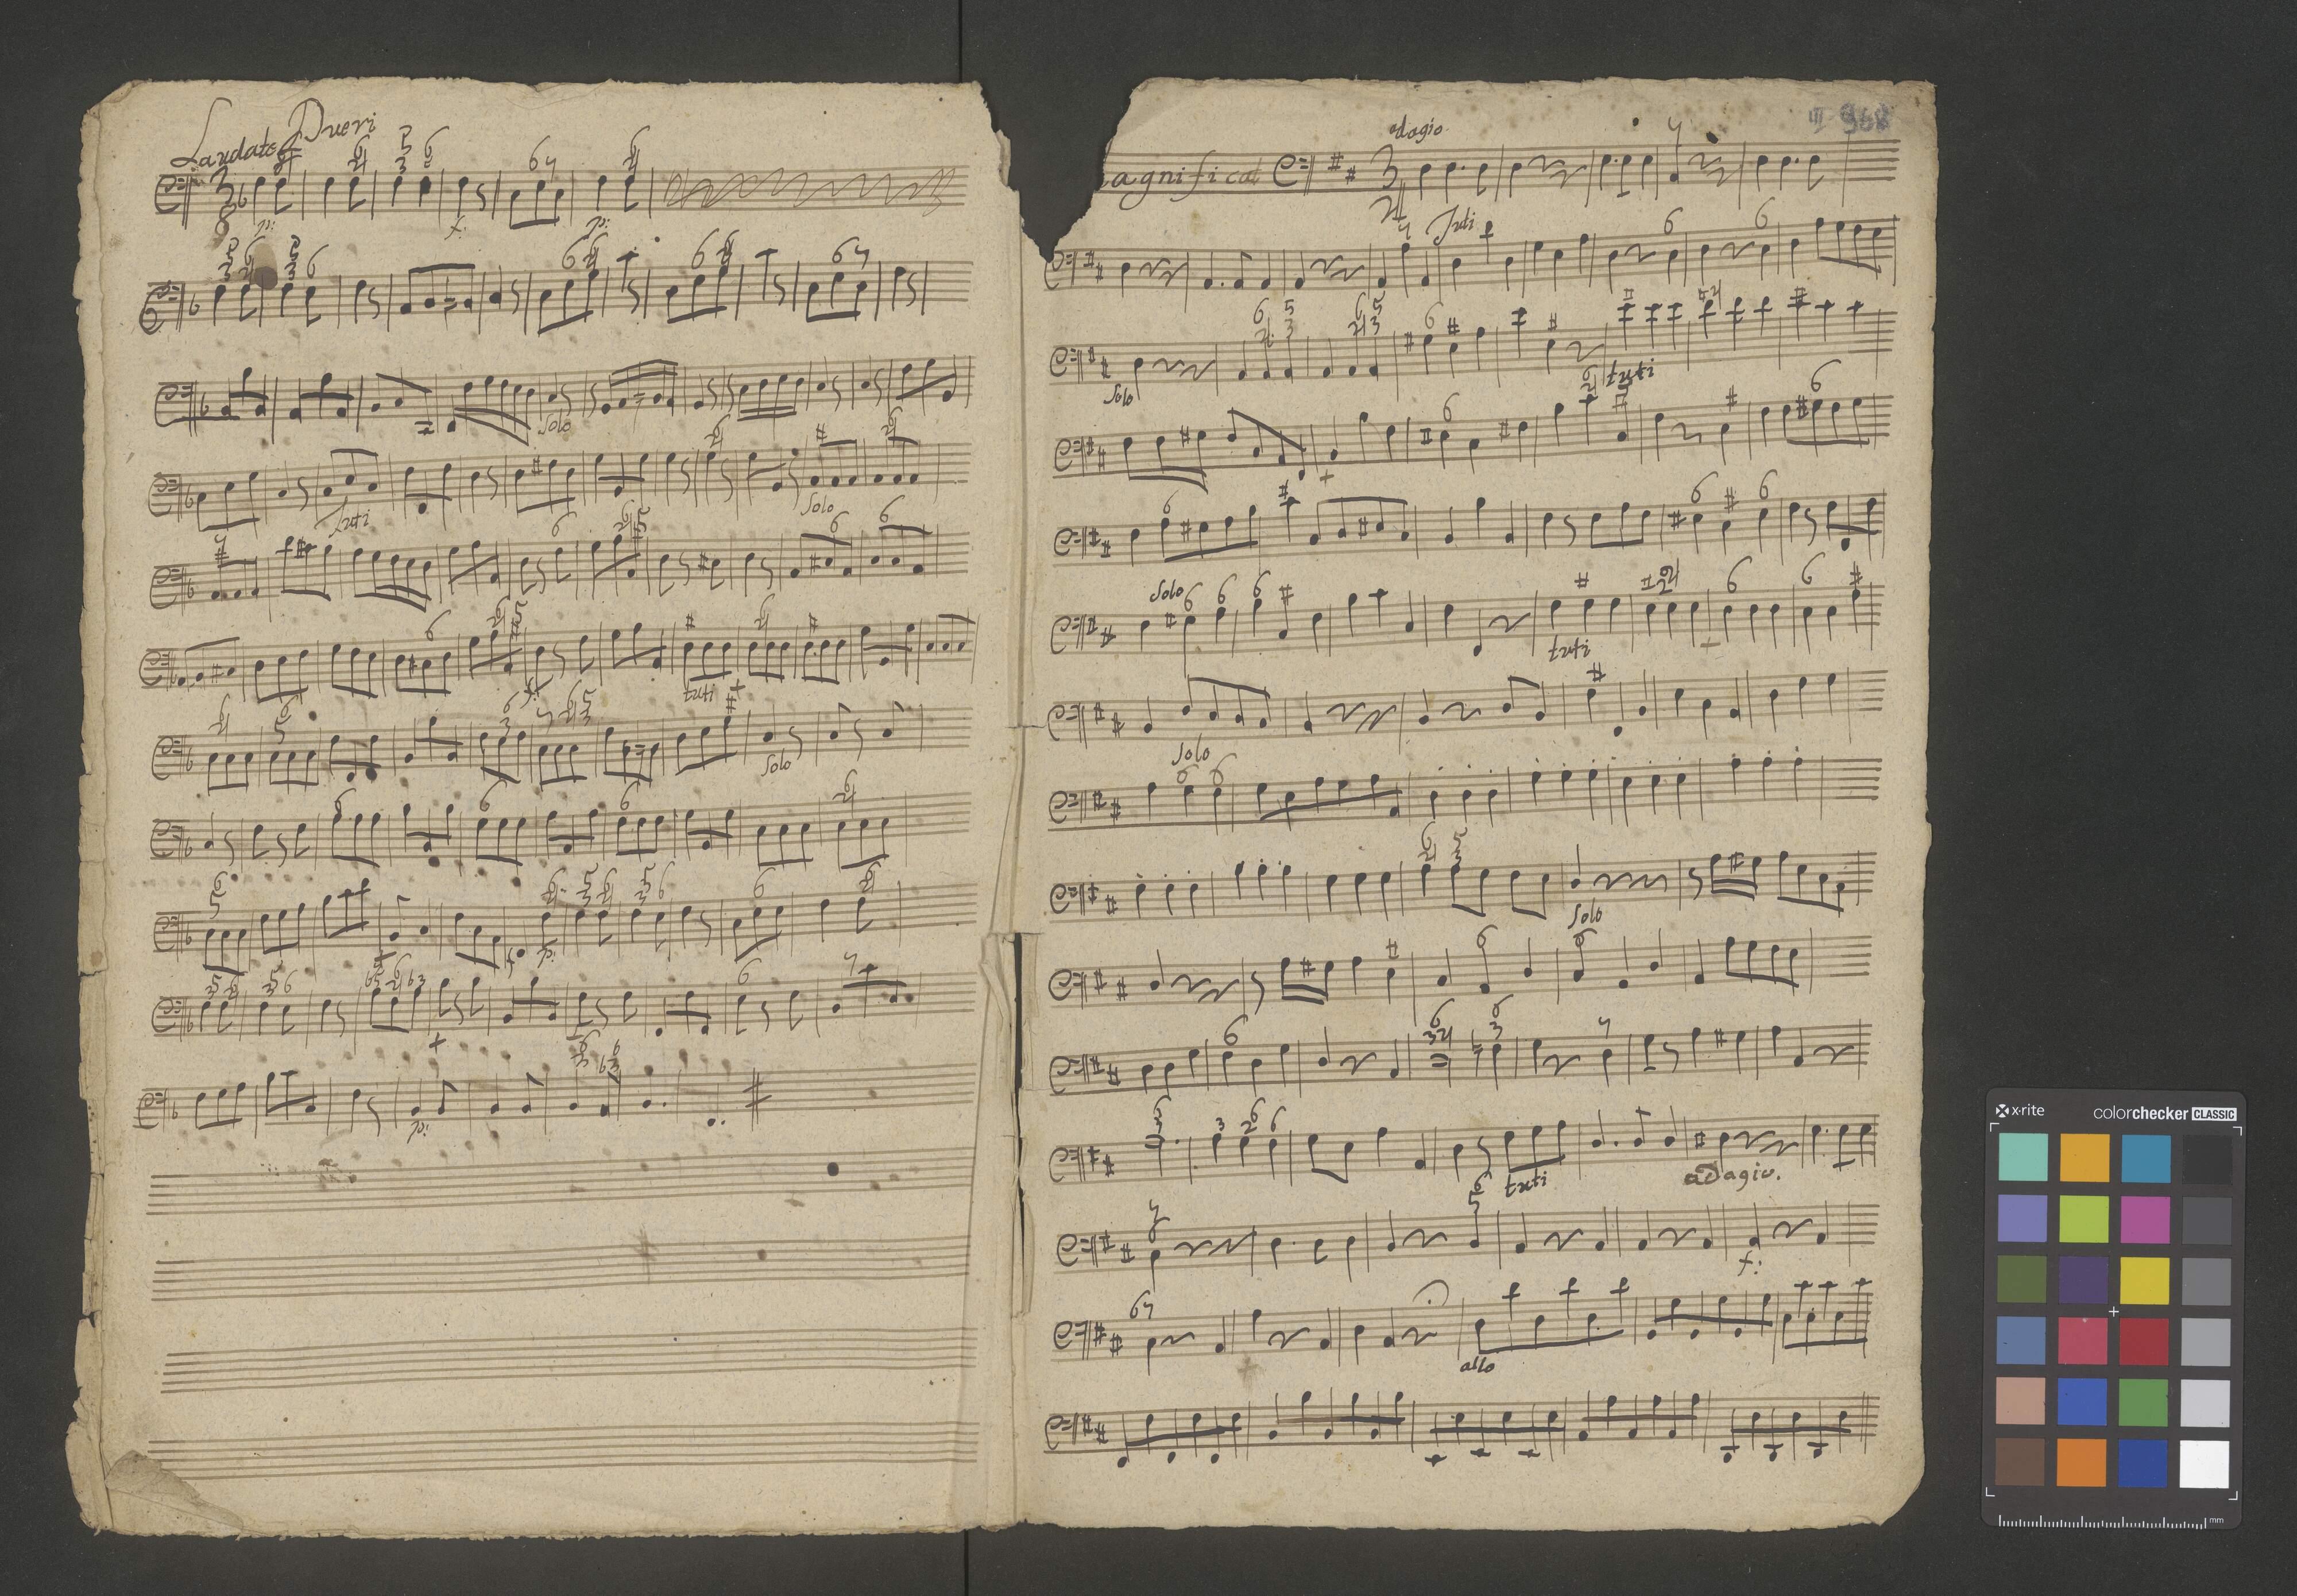 Laudate Pueri
p: f: p:
Solo
tuti Solo
f: tuti
Solo
f p:
p:
III 968
adagio
agnificat
Tuti
Solo tuti
Solo
tuti
Solo
Solo
tuti adagio.
f:
allo
x-rite colorchecker CLASSIC
mm